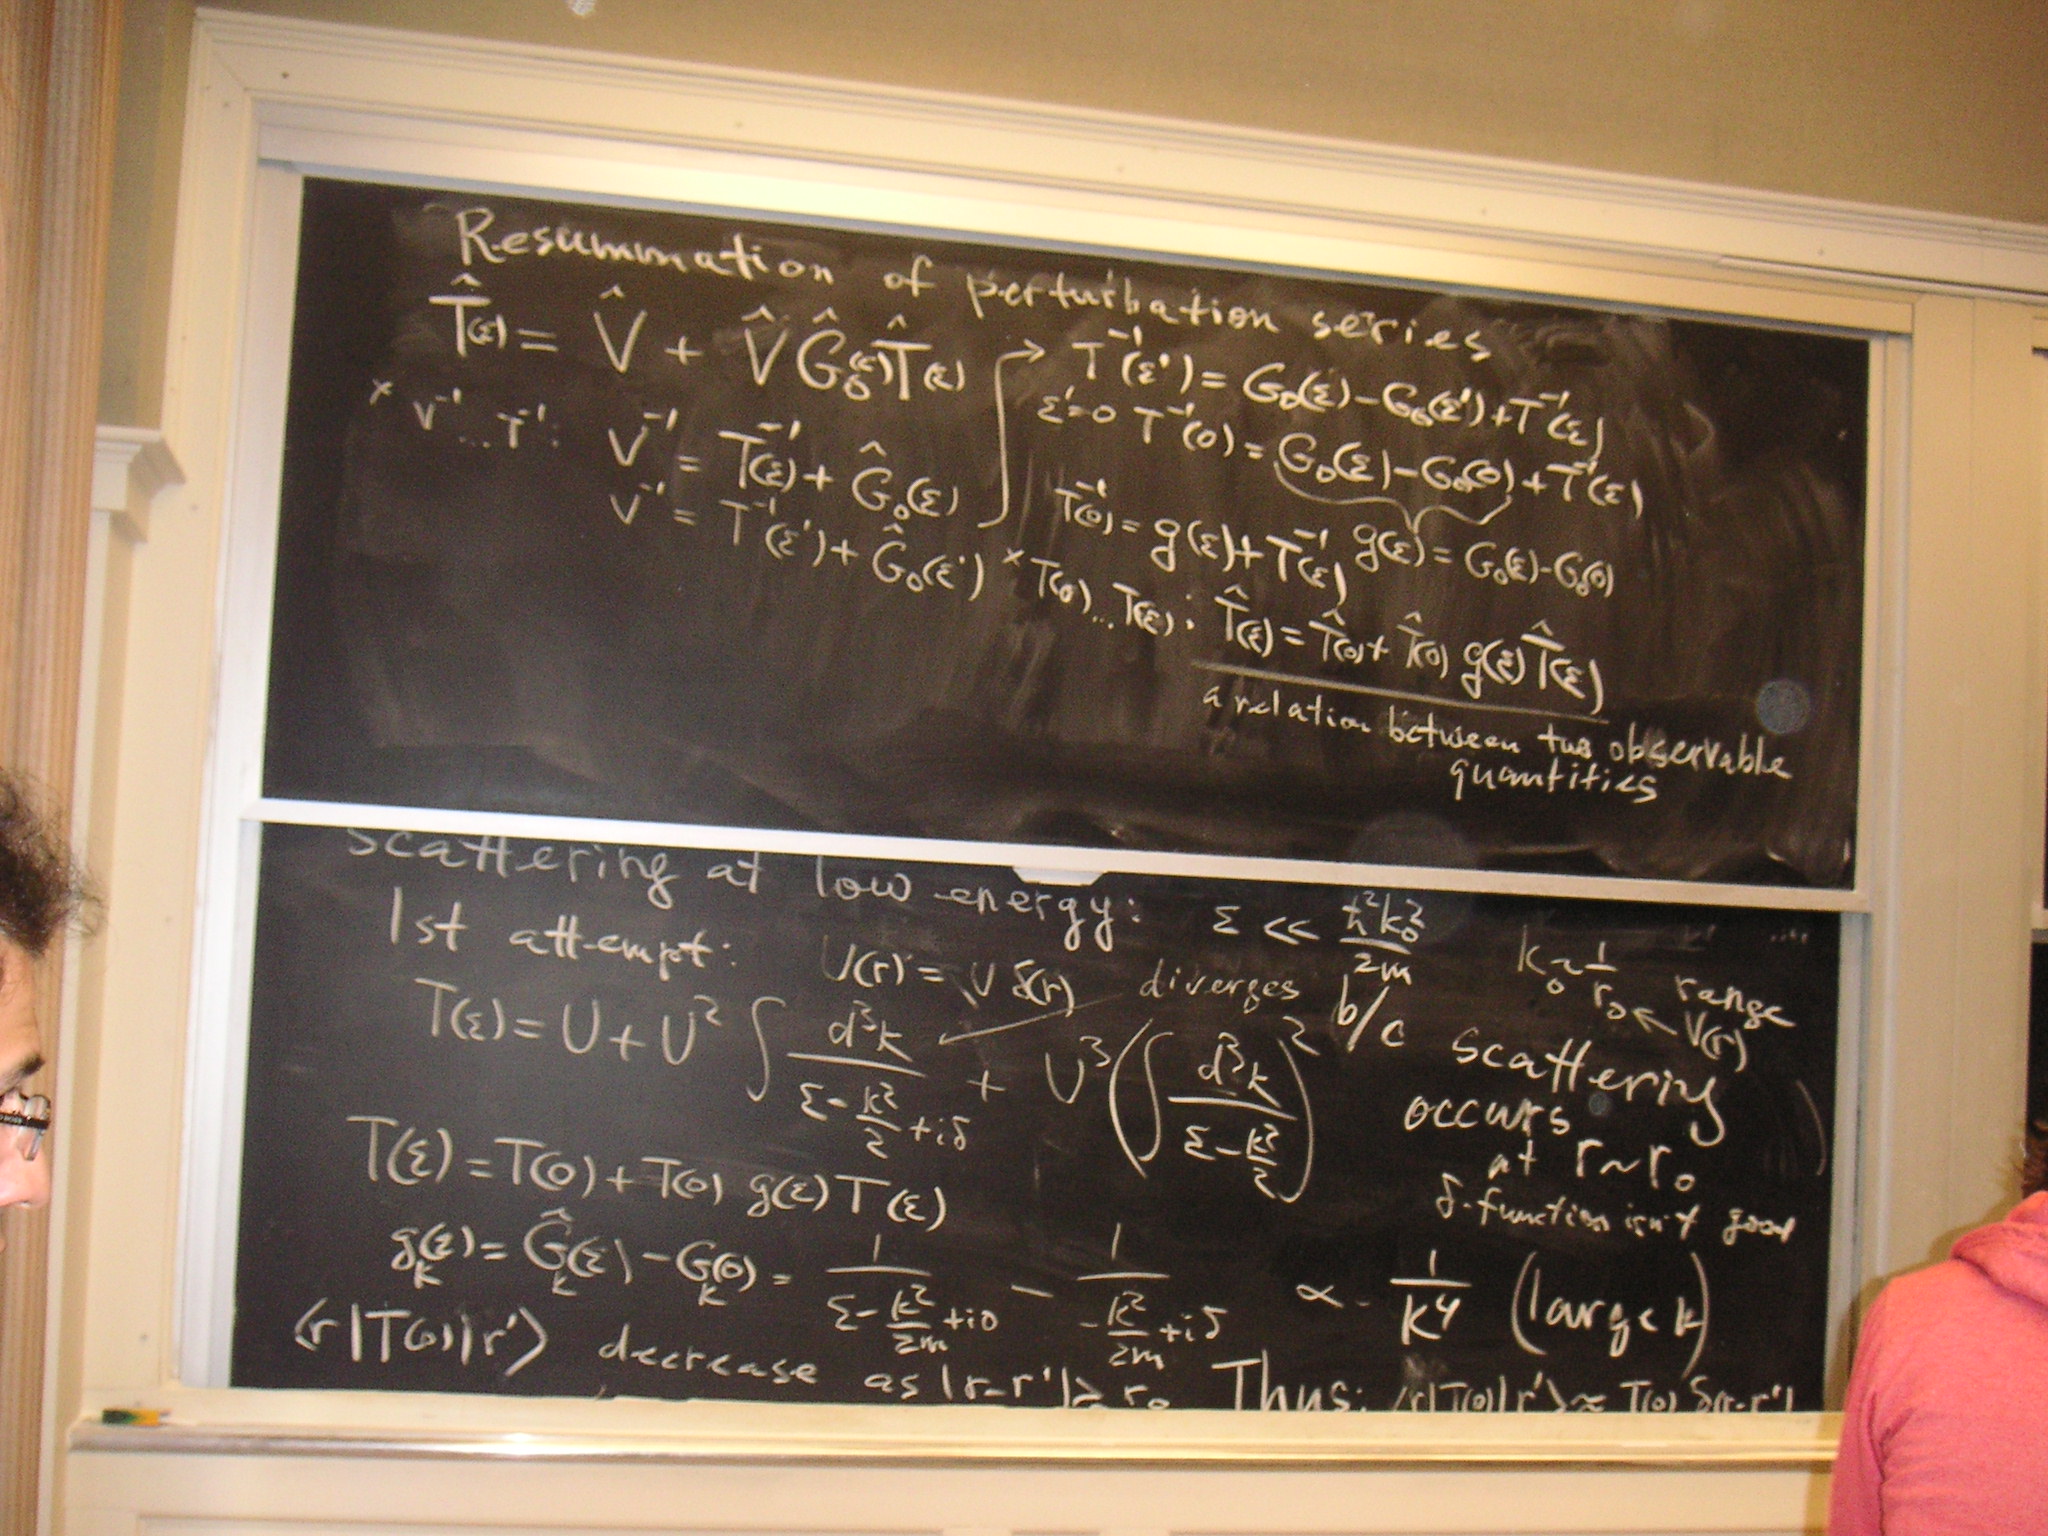 Resummation of perturbation series
T̂(ε) = V̂ + V̂ Ĝ₀(ε) T̂(ε)
× V⁻¹ ... T⁻¹: V⁻¹ = T⁻¹(ε) + Ĝ₀(ε)
V⁻¹ = T⁻¹(ε') + Ĝ₀(ε')
→ T⁻¹(ε') = G₀(ε) − G₀(ε') + T⁻¹(ε)
ε'=0 T⁻¹(0) = G₀(ε) − G₀(0) + T⁻¹(ε)
T⁻¹(0) = g(ε) + T⁻¹(ε) g(ε) = G₀(ε) − G₀(0)
× T(0) ... T(ε): T̂(ε) = T̂(0) + T̂(0) g(ε) T̂(ε)
a relation between two observable
quantities
Scattering at low energy: ε << ħ²k₀²/2m k₀ ~ 1/r₀ ← range V(r)
1st attempt: U(r) = U δ(r) diverges b/c scattering
occurs
at r ~ r₀
δ-function isn't good
T(ε) = U + U² ∫ d³k/(ε − k²/2 + iδ) + U³ (∫ d³k/(ε − k²/2))²
T(ε) = T(0) + T(0) g(ε) T(ε)
gₖ(ε) = Ĝₖ(ε) − Gₖ(0) = 1/(ε − k²/2m + iδ) − 1/(−k²/2m + iδ) ∝ 1/k⁴ (large k)
⟨r|T(0)|r'⟩ decrease as |r−r'| ≳ r₀ Thus: ⟨r|T(0)|r'⟩ ≈ T(0) δ(r−r')